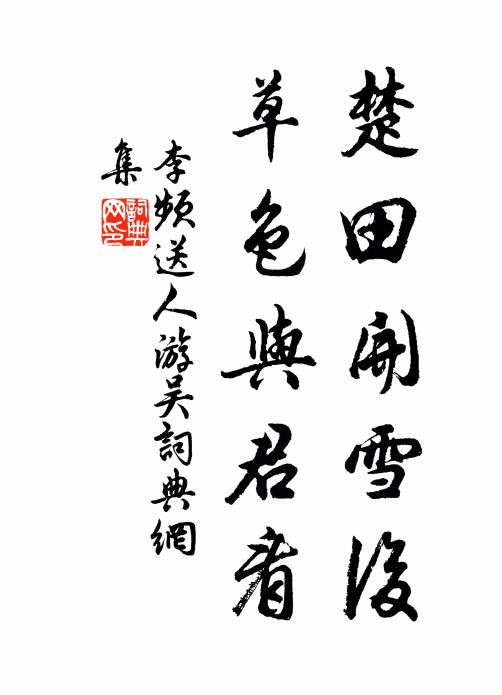 楚田開雪後
草色與君看
李頻送人游吳詞典網
集
詞典网印